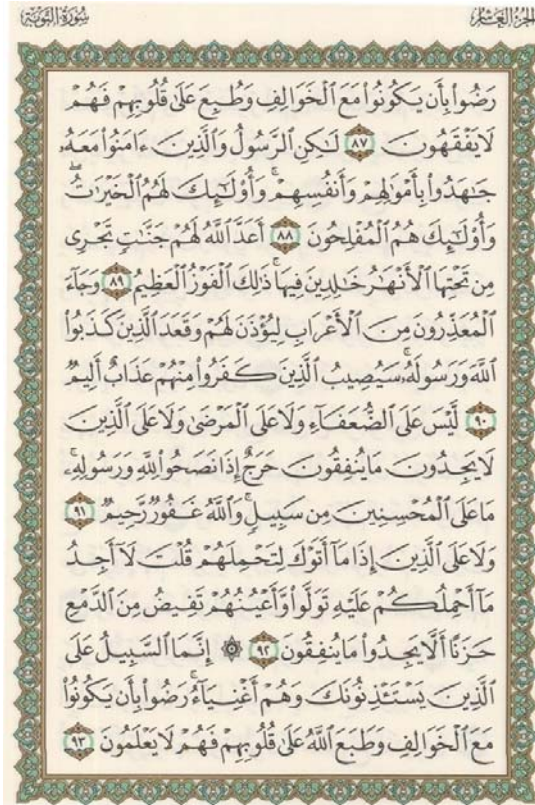 الجزء العاشر سورة التوبة
رَضُوا۟ بِأَن يَكُونُوا۟ مَعَ ٱلْخَوَالِفِ وَطُبِعَ عَلَىٰ قُلُوبِهِمْ فَهُمْ
لَا يَفْقَهُونَ ٨٧ لَٰكِنِ ٱلرَّسُولُ وَٱلَّذِينَ ءَامَنُوا۟ مَعَهُۥ
جَٰهَدُوا۟ بِأَمْوَٰلِهِمْ وَأَنفُسِهِمْ ۚ وَأُو۟لَٰٓئِكَ لَهُمُ ٱلْخَيْرَٰتُ ۖ
وَأُو۟لَٰٓئِكَ هُمُ ٱلْمُفْلِحُونَ ٨٨ أَعَدَّ ٱللَّهُ لَهُمْ جَنَّٰتٍ تَجْرِى
مِن تَحْتِهَا ٱلْأَنْهَٰرُ خَٰلِدِينَ فِيهَا ۚ ذَٰلِكَ ٱلْفَوْزُ ٱلْعَظِيمُ ٨٩ وَجَآءَ
ٱلْمُعَذِّرُونَ مِنَ ٱلْأَعْرَابِ لِيُؤْذَنَ لَهُمْ وَقَعَدَ ٱلَّذِينَ كَذَبُوا۟
ٱللَّهَ وَرَسُولَهُۥ ۚ سَيُصِيبُ ٱلَّذِينَ كَفَرُوا۟ مِنْهُمْ عَذَابٌ أَلِيمٌ
٩٠ لَّيْسَ عَلَى ٱلضُّعَفَآءِ وَلَا عَلَى ٱلْمَرْضَىٰ وَلَا عَلَى ٱلَّذِينَ
لَا يَجِدُونَ مَا يُنفِقُونَ حَرَجٌ إِذَا نَصَحُوا۟ لِلَّهِ وَرَسُولِهِۦ ۚ
مَا عَلَى ٱلْمُحْسِنِينَ مِن سَبِيلٍ ۚ وَٱللَّهُ غَفُورٌ رَّحِيمٌ ٩١
وَلَا عَلَى ٱلَّذِينَ إِذَا مَآ أَتَوْكَ لِتَحْمِلَهُمْ قُلْتَ لَآ أَجِدُ
مَآ أَحْمِلُكُمْ عَلَيْهِ تَوَلَّوا۟ وَّأَعْيُنُهُمْ تَفِيضُ مِنَ ٱلدَّمْعِ
حَزَنًا أَلَّا يَجِدُوا۟ مَا يُنفِقُونَ ٩٢ ۞ إِنَّمَا ٱلسَّبِيلُ عَلَى
ٱلَّذِينَ يَسْتَـْٔذِنُونَكَ وَهُمْ أَغْنِيَآءُ ۚ رَضُوا۟ بِأَن يَكُونُوا۟
مَعَ ٱلْخَوَالِفِ وَطَبَعَ ٱللَّهُ عَلَىٰ قُلُوبِهِمْ فَهُمْ لَا يَعْلَمُونَ ٩٣